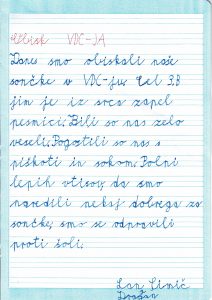 Obisk VDC-JA
Danes smo obiskali naše
sončke v VDC-ju. Cel 3.B
jim je iz srca zapel
pesmici. Bili so nas zelo
veseli. Pogostili so nas s
piškoti in sokom. Polni
lepih vtisov, da smo
naredili nekaj dobrega za
sončke, smo se odpravili
proti šoli.
Lan Simič